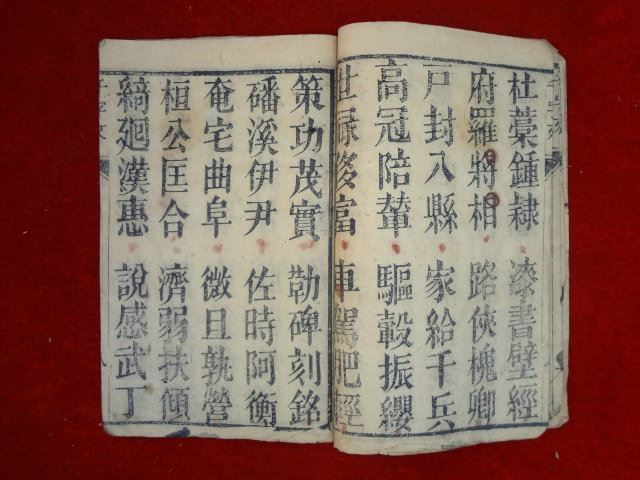 杜藁鍾隸 漆書壁經
府羅將相 路俠槐卿
戶封八縣 家給千兵
高冠陪輦 驅轂振纓
世祿侈富 車駕肥輕
策功茂實 勒碑刻銘
磻溪伊尹 佐時阿衡
奄宅曲阜 微旦孰營
桓公匡合 濟弱扶傾
綺廻漢惠 說感武丁
千字文 八